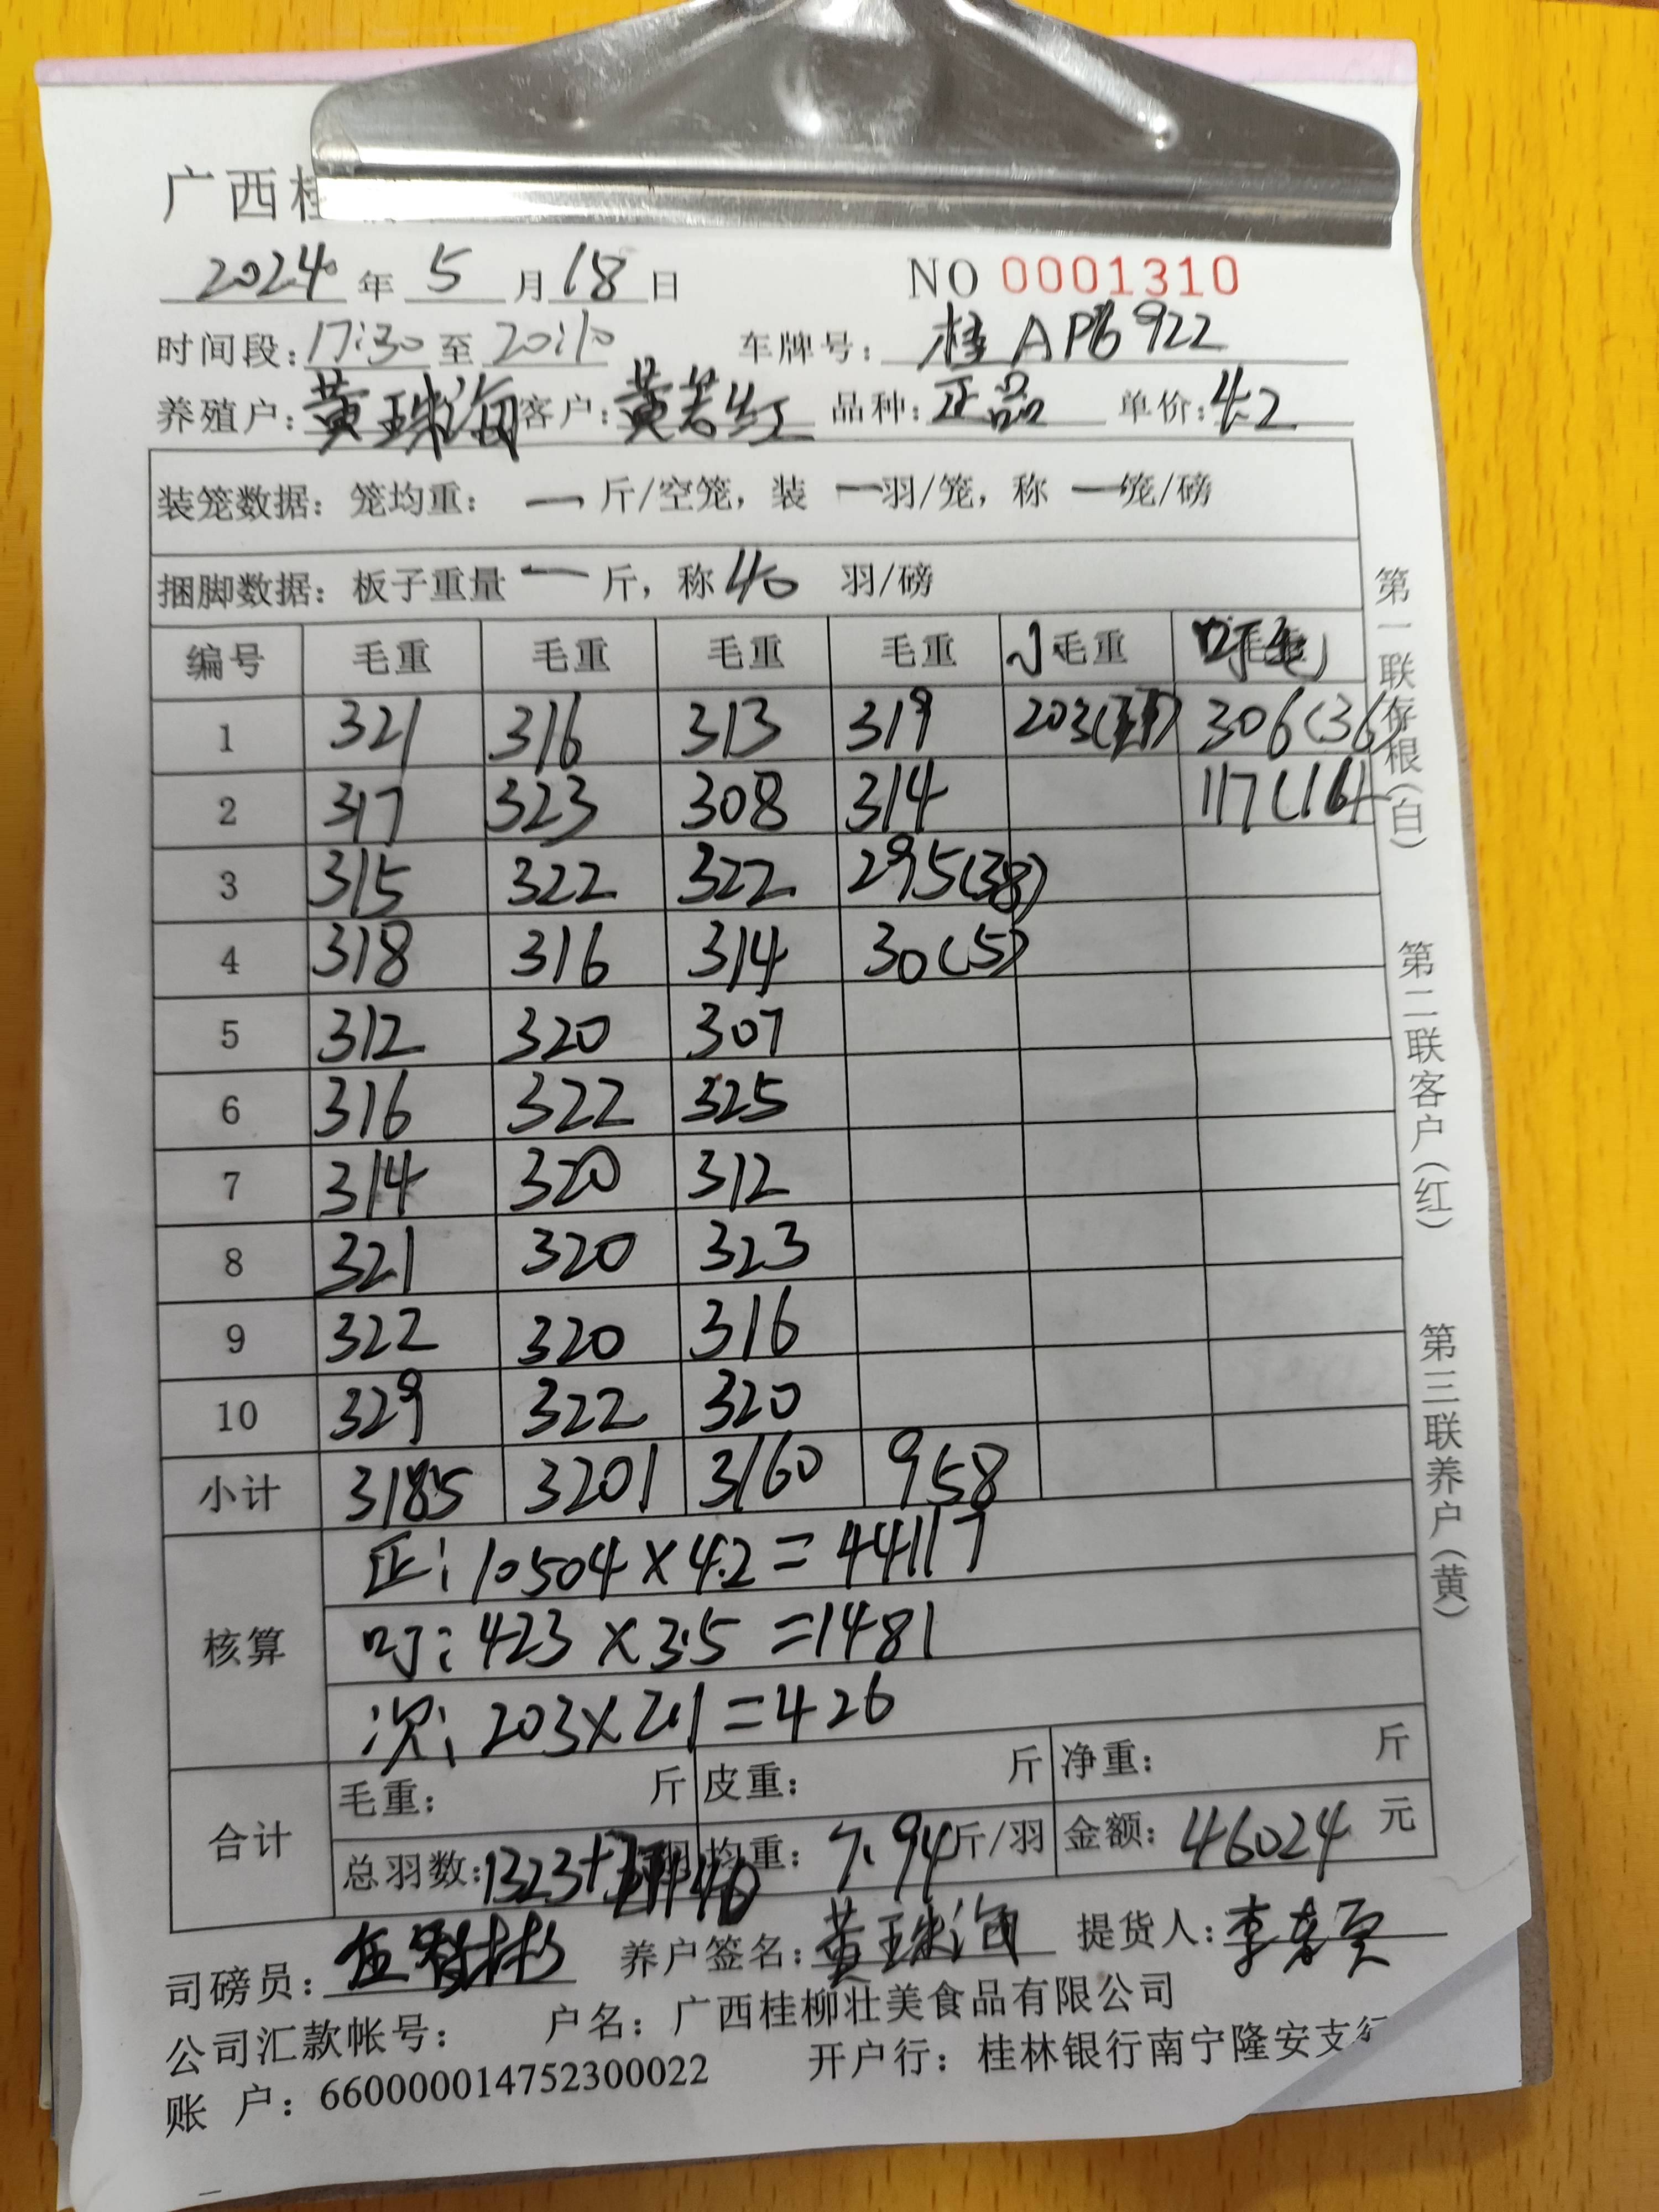 广西桂
2024年 5月18日 NO 0001310
时间段:17:30至20:10 车牌号:桂AP6922
养殖户:黄珠海 客户:黄若红 品种:正品 单价:4.2
装笼数据: 笼均重: 一 斤/空笼, 装 一羽/笼, 称 一笼/磅
捆脚数据: 板子重量 一 斤, 称40 羽/磅
编号 毛重 毛重 毛重 毛重 毛重
1 321 316 313 319 203 306(36)
2 317 323 308 314 117(16)
3 315 322 322 295(38)
4 318 316 314 30(5)
5 312 320 307
6 316 322 325
7 314 320 312
8 321 320 323
9 322 320 316
10 329 322 320
小计 3185 3201 3160 958
核算
正: 10504×4.2=44117
叮: 423×3.5=1481
次: 203×2.1=426
合计
毛重: 斤 皮重: 斤 净重: 斤
总羽数:1323+ 均重: 7.94斤/羽 金额: 46024 元
司磅员: 养户签名:黄珠海 提货人:李
公司汇款帐号: 户名: 广西桂柳壮美食品有限公司
账 户: 660000014752300022 开户行: 桂林银行南宁隆安支行
第一联存根(白)
第二联客户(红)
第三联养户(黄)